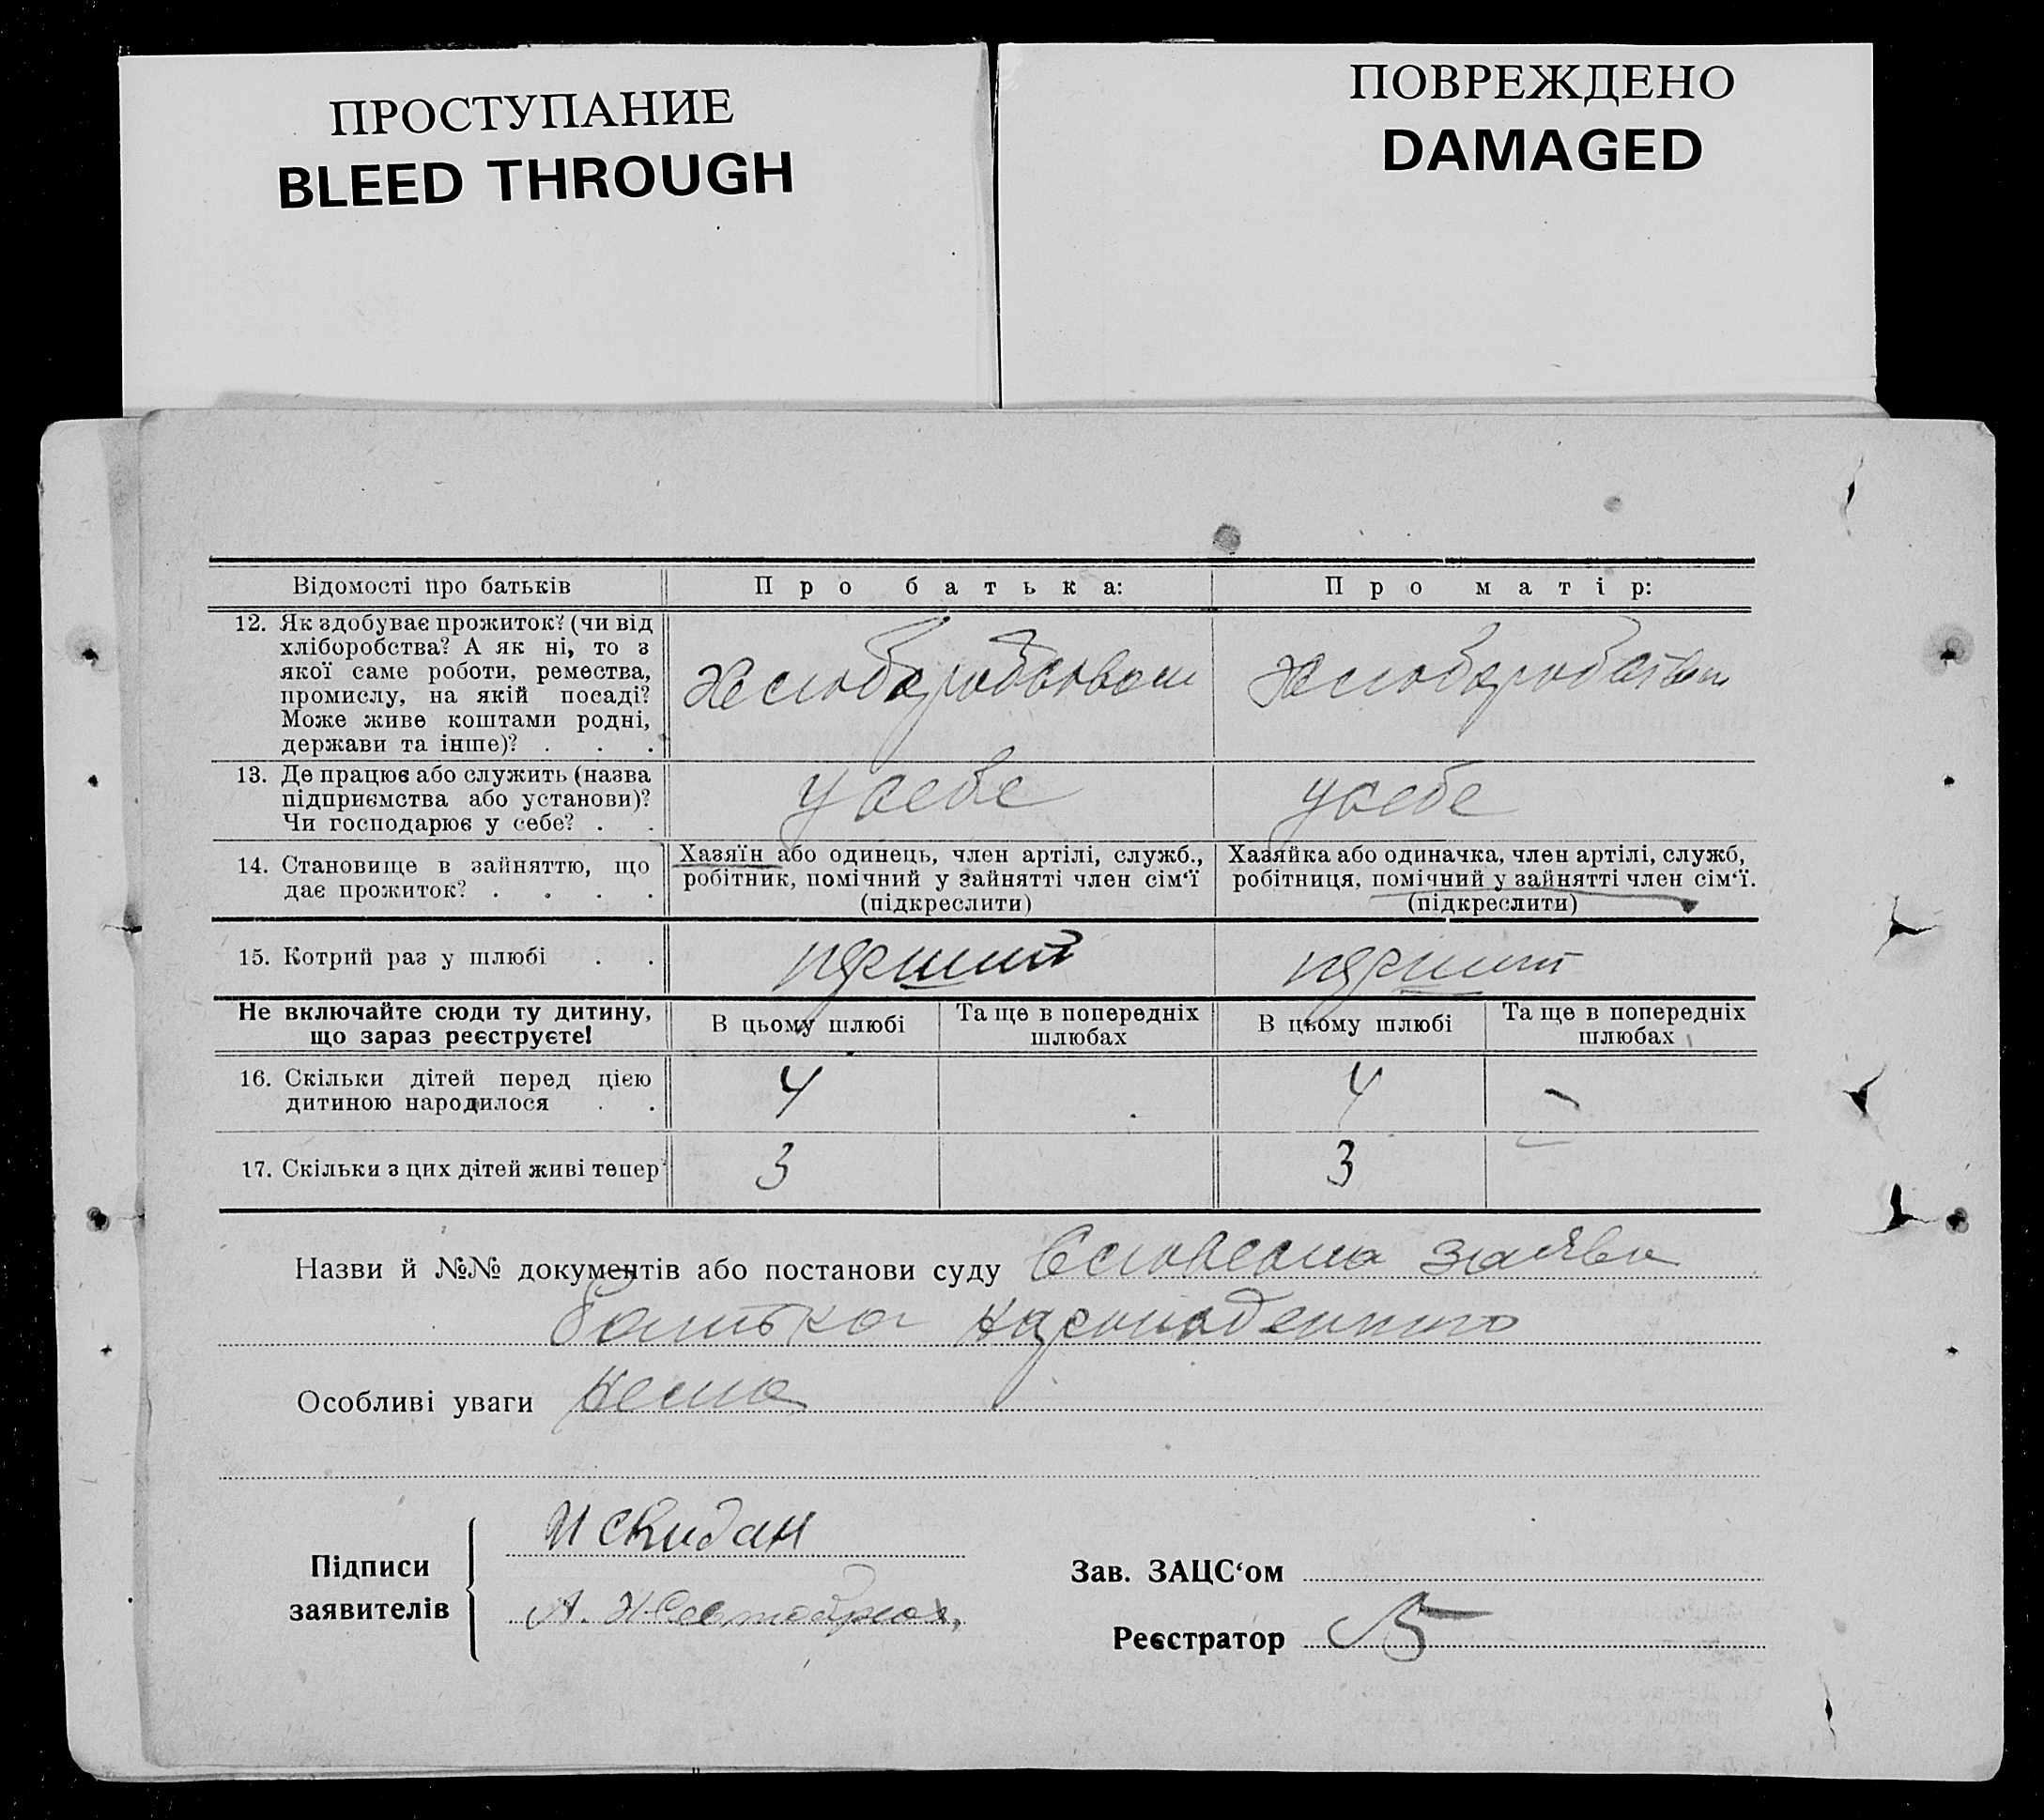 ПРОСТУПАНИЕ
BLEED THROUGH
ПОВРЕЖДЕНО
DAMAGED
Відомості про батьків
Про батька:
Про матір:
12. Як здобуває прожиток? (чи від
хліборобства? А як ні, то з
якої саме роботи, ремества,
промислу, на якій посаді?
Може живе коштами родні,
держави та інше)? . . .
13. Де працює або служить (назва
підприємства або установи)?
Чи господарює у себе? . .
у себе
у себе
14. Становище в зайняттю, що
дає прожиток? . . . .
Хазяїн або одинець, член артілі, служб.,
робітник, помічний у зайнятті член сім‘ї
(підкреслити)
Хазяйка або одиначка, член артілі, служб,
робітниця, помічний у зайнятті член сім‘ї.
(підкреслити)
15. Котрий раз у шлюбі . .
перший
перший
Не включайте сюди ту дитину,
що зараз реєструєте!
В цьому шлюбі
Та ще в попередніх
шлюбах
В цьому шлюбі
Та ще в попередніх
шлюбах
16. Скільки дітей перед цією
дитиною народилося . .
4
4
–
17. Скільки з цих дітей живі тепер
3
3
–
Назви й №№ документів або постанови суду заява
батька
Особливі уваги нема
Підписи
заявителів
И Скидан
А.
Зав. ЗАЦС‘ом
Реєстратор